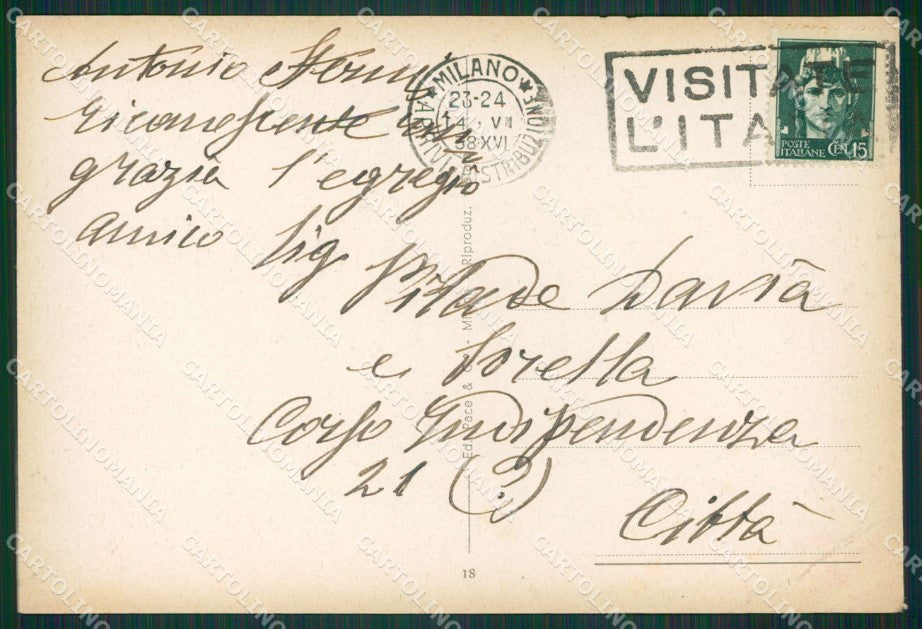 Antonio
riconoscente
grazia l'egregio
amico Sig.
Pilade Davià
e Sorella
Corso Indipendenza
21 (?)
Città
MILANO
23-24
14 VII
38 XVI
ARRIVI DISTRIBUZIONE
VISITATE
L'ITA
POSTE
ITALIANE
CEN. 15
Ed. Pace &
Riproduz.
18
CARTOLINOMANIA